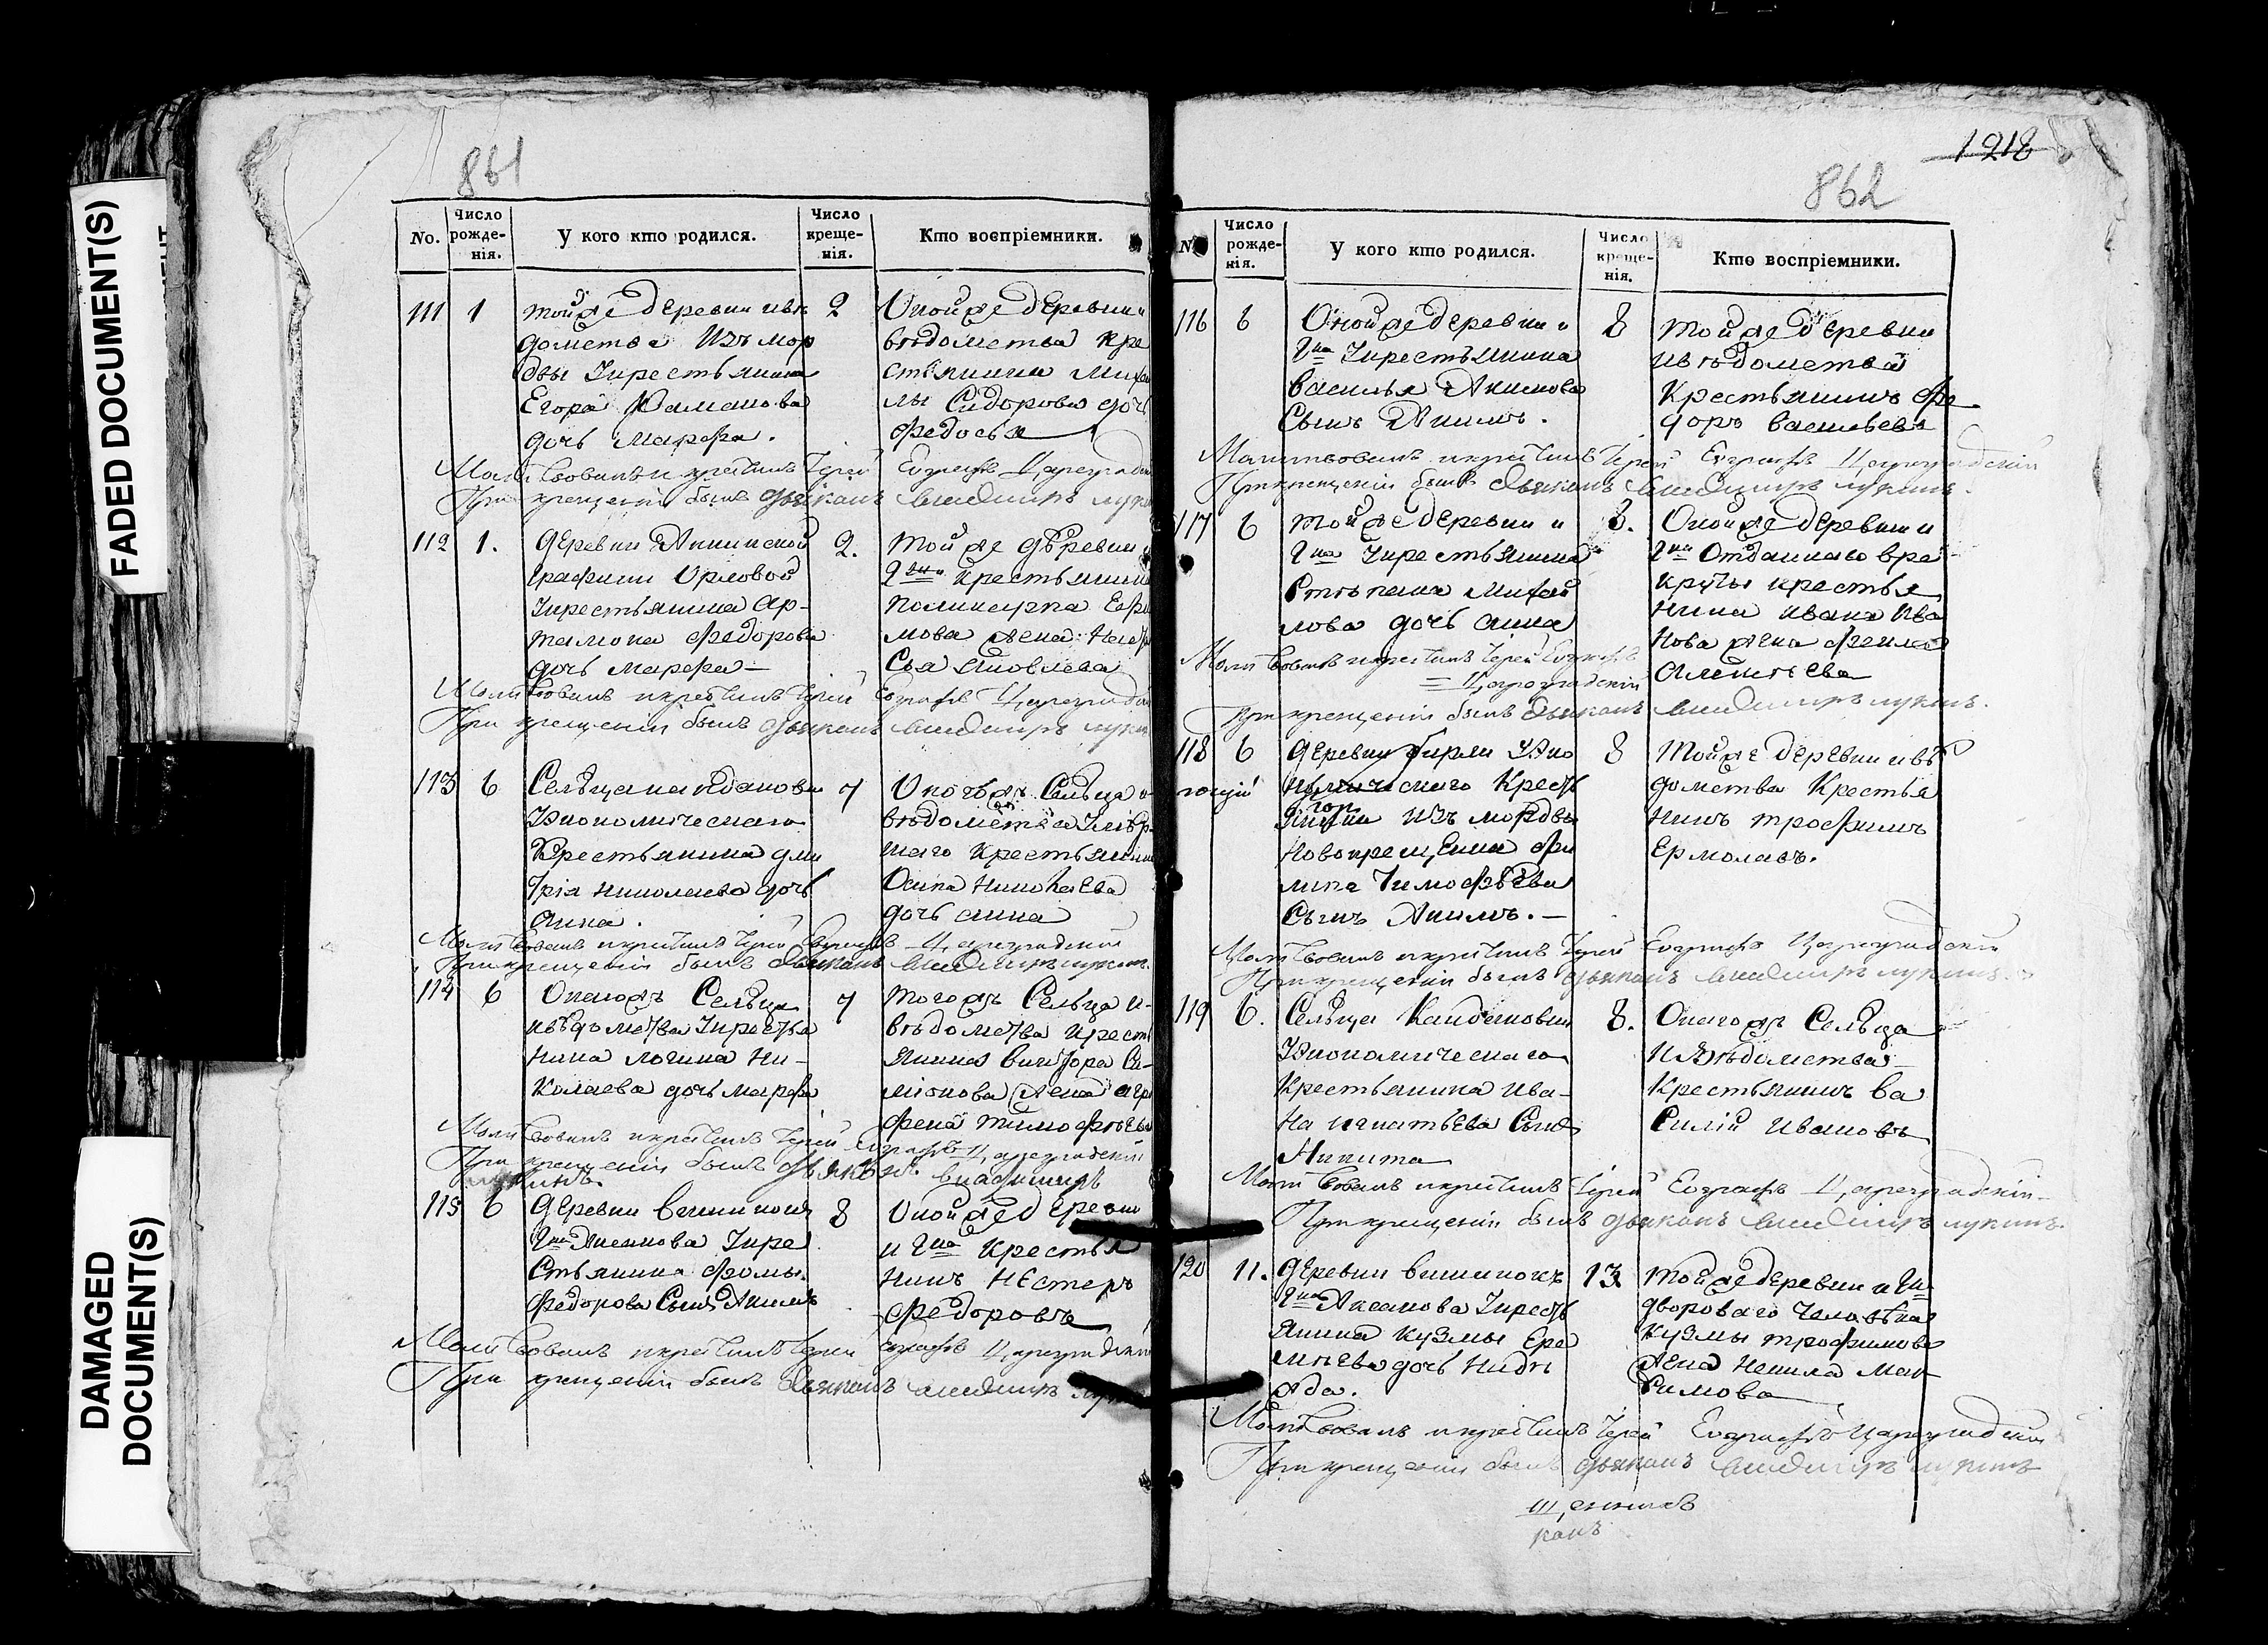 FADED DOCUMENT(S)
DAMAGED
DOCUMENT(S)
861
No.
Число рожде-нія.
У кого кто родился.
Число креще-нія.
Кто воспріемники.
111 1
тойже деревни ивѣ
домства Изъ мор
двы Крестьянина
Егора Романова
дочь Марфа.
2
Оной же деревни и
вѣдомства кре
стьянина Михаи
лы Сидорова дочь
Федосья
Молитвовалъ и крестилъ Іерей Евграфъ Цареградскій
При крещеніи былъ дьяконъ Владимиръ Лукинъ
112 1.
деревни Аннинской
графини Орловой
Крестьянина Ар-
тамона Федорова
дочь марфа
2.
той же деревни и
Гжи крестьянина
поликарпа Ефи
мова жена Наста
Сья Яковлева
Молитвовалъ и крестилъ Іерей Евграфъ Цареградскій
При крещеніи былъ дьяконъ Владимиръ Лукинъ
113 6
Сельца кандановки
Экономическаго
Крестьянина дми
трія николаева дочь
Анна.
7
Оногожъ Сельца и
вѣдомства
крестьянина
Осипа николаева
дочь анна
Молитвовалъ и крестилъ Іерей Евграфъ Цареградскій
При крещеніи былъ дьяконъ Владимиръ Лукинъ.
114 6
Онагожъ Сельца
ивѣдомства Крестья
нина логина Ни-
колаева дочь марфа
7
тогожъ Сельца и-
вѣдомства крестьянина
Си-
міонова жена агра
фена тимофѣева
Молитвовалъ и крестилъ Іерей Евграфъ Цареградскій
При крещеніи былъ дьяконъ владимиръ
лукинъ.
115 6
деревни вишнокъ
Гна Аксакова Кре
стьянина фомы
федорова Сынъ Акимъ
8
Оной же деревни
и Гна Крестья
нинъ Нестеръ
федоровъ
Молитвовалъ и крестилъ Іерей Евграфъ Цареградскій
При крещеніи былъ дьяконъ Владимиръ
1218
862
No
Число рожде-нія.
У кого кто родился.
Число креще-нія.
Кто воспріемники.
116 6
Оной же деревни и
Гна Крестьянина
василья Акимова
Сынъ Акимъ.
8
той же деревни
ивѣдомства
Крестьянинъ фе
доръ васильевъ
Молитвовалъ и крестилъ Іерей Евграфъ Цареградскій
При крещеніи былъ дьяконъ Владимиръ лукинъ.
117 6
той же деревни и
Гна Крестьянина
Степана Михай
лова дочь анна
8.
Оной же деревни и
Гна Отданнаго вре
круты крестья
нина ивана Ива
нова жена
Алексѣева
Молитвовалъ и крестилъ Іерей Евграфъ
= Цареградскій
При крещеніи былъ дьяконъ Владимиръ лукинъ.
118 6
деревни Бирли Эко
номическаго Кресть
янина Изъ мордвы
новокрещена фи
липа Тимофѣева
Сынъ Акимъ.
8
Той же деревни ивѣ
домства Крестья
нинъ трофимъ
Ермолаевъ.
Молитвовалъ и крестилъ Іерей Евграфъ Цареградскій
При крещеніи былъ дьяконъ Владимиръ лукинъ.
119 6.
Сельца Кандановки
Экономическаго
Крестьянина Ива-
на игнатьева Сынъ
Никита
8.
Онагожъ Сельца
ивѣдомства
Крестьянинъ Ва
силій Ивановъ
Молитвовалъ и крестилъ Іерей Евграфъ Цареградскій
При крещеніи былъ дьяконъ Владимиръ лукинъ.
120 11.
деревни вишнокъ
Гна Аксакова Кресть
янина Кузмы Ере
мѣева дочь Надѣ
жда.
13
той же деревни и Гна
двороваго человѣка
Кузмы трофимова
жена ненила Мак
симова
Молитвовалъ и крестилъ Іерей Евграфъ Цареградскій
При крещеніи былъ дьяконъ Владимиръ лукинъ